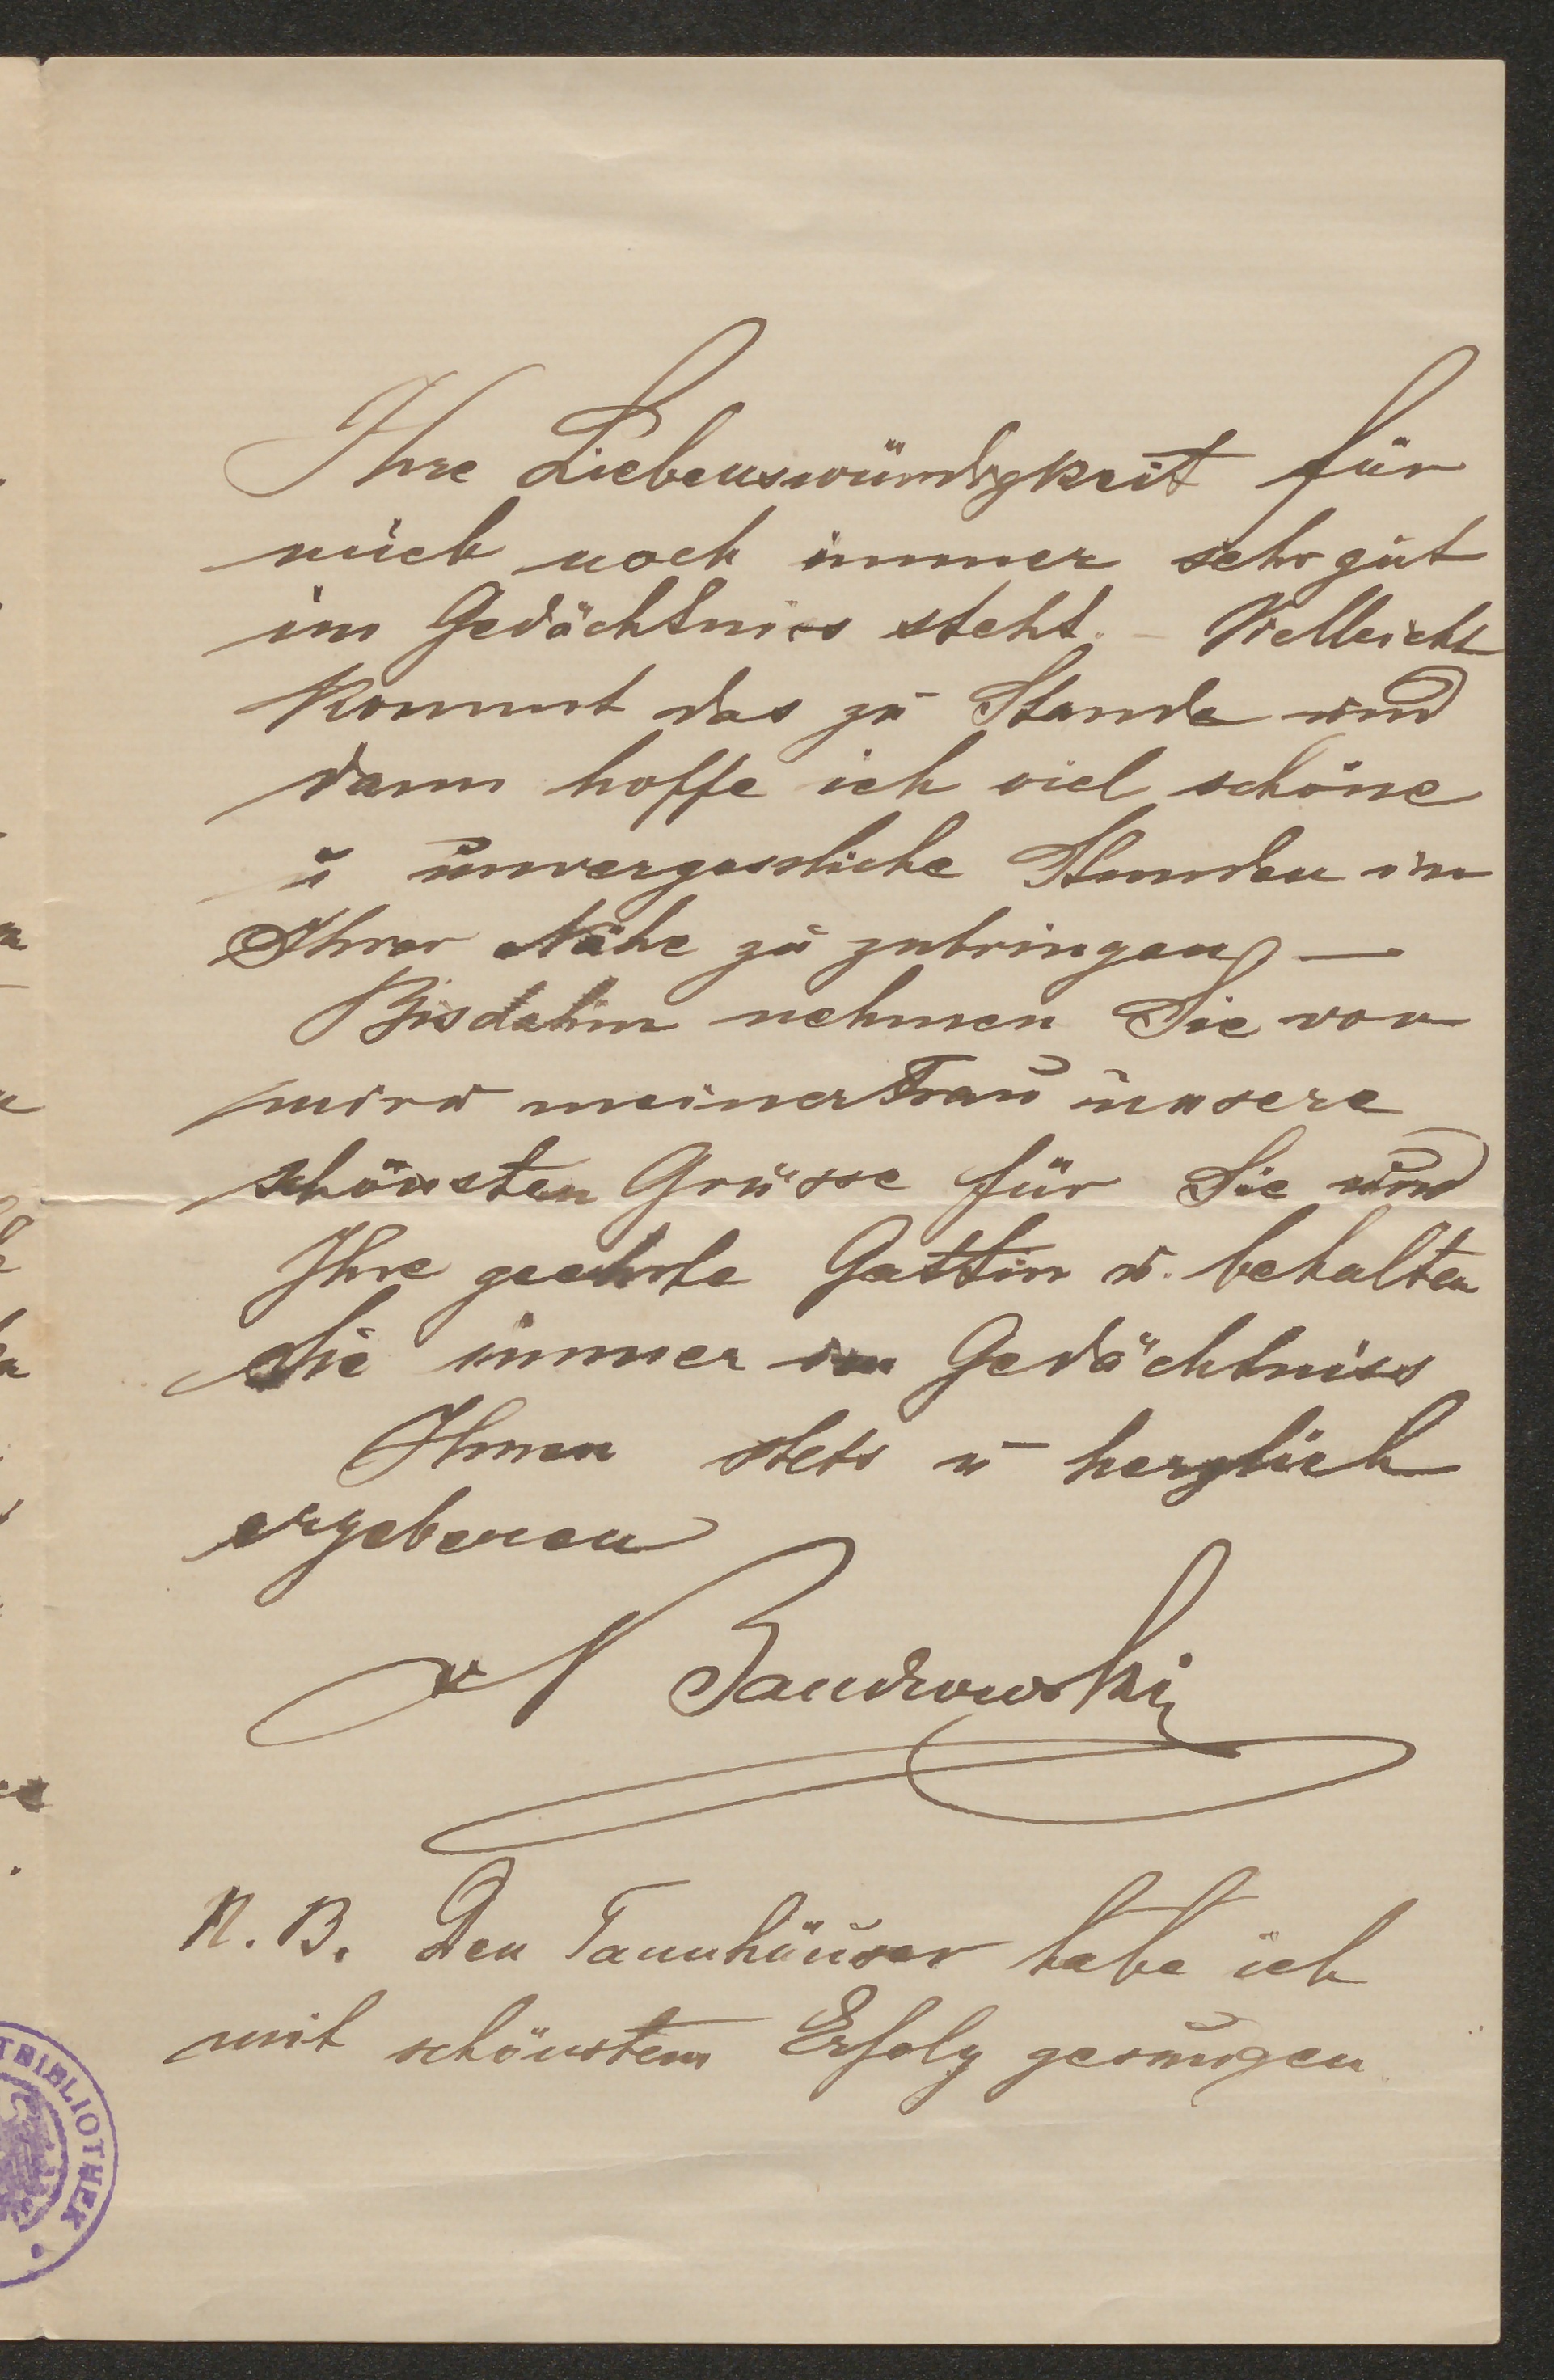 Ihre Liebenswürdigkeit für
mich noch immer sehr gut
im Gedächtniss steht. – Vielleicht
kommt das zu Stande und
dann hoffe ich viel schöne
u unvergessliche Stunden in
Ihrer Nähe zu zubringen –
Bisdahin nehmen Sie von
mir u meiner Frau unsere
schönsten Grüsse für Sie und
Ihre geehrte Gattin u. behalten
Sie immer im Gedächtniss
Ihnen stets u herzlich
ergebenen
Bandrowski
N. B. Den Tannhäuser habe ich
mit schönstem Erfolg gesungen
TBIBLIOTHEK